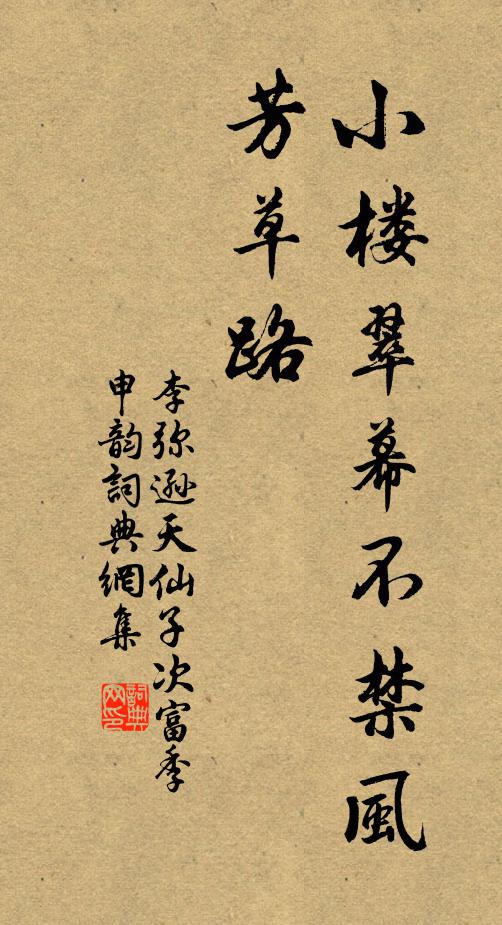 小楼翠幕不禁風
芳草路
李弥遜天仙子次富季
申韵詞典網集
詞典
网印